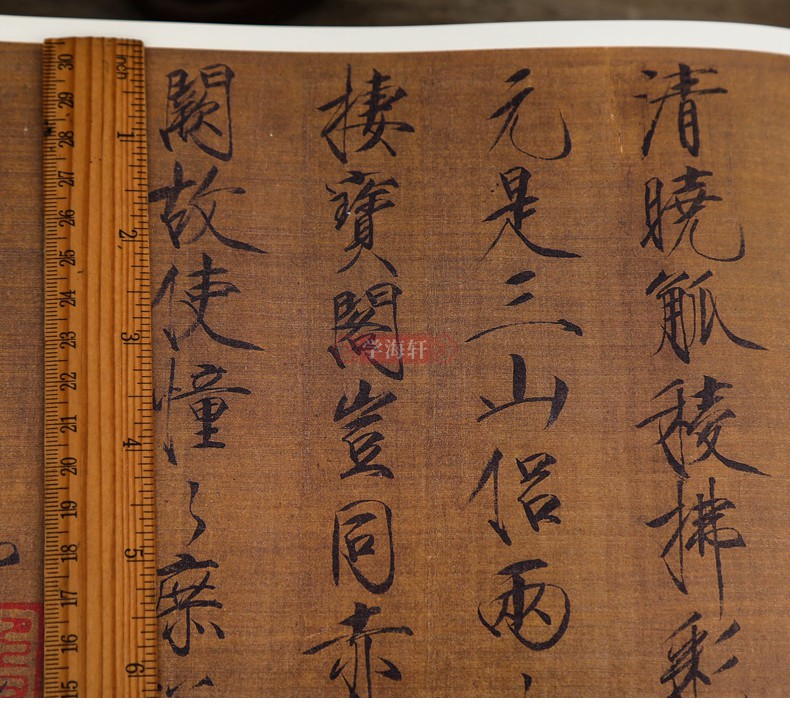 清曉觚稜拂彩
元是三山侶兩
棲寶閣豈同赤
闕故使憧々庶
学海轩
30 29 28 27 26 25 24 23 22 21 20 19 18 17 16 15
inch 1 2 3 4 5 6